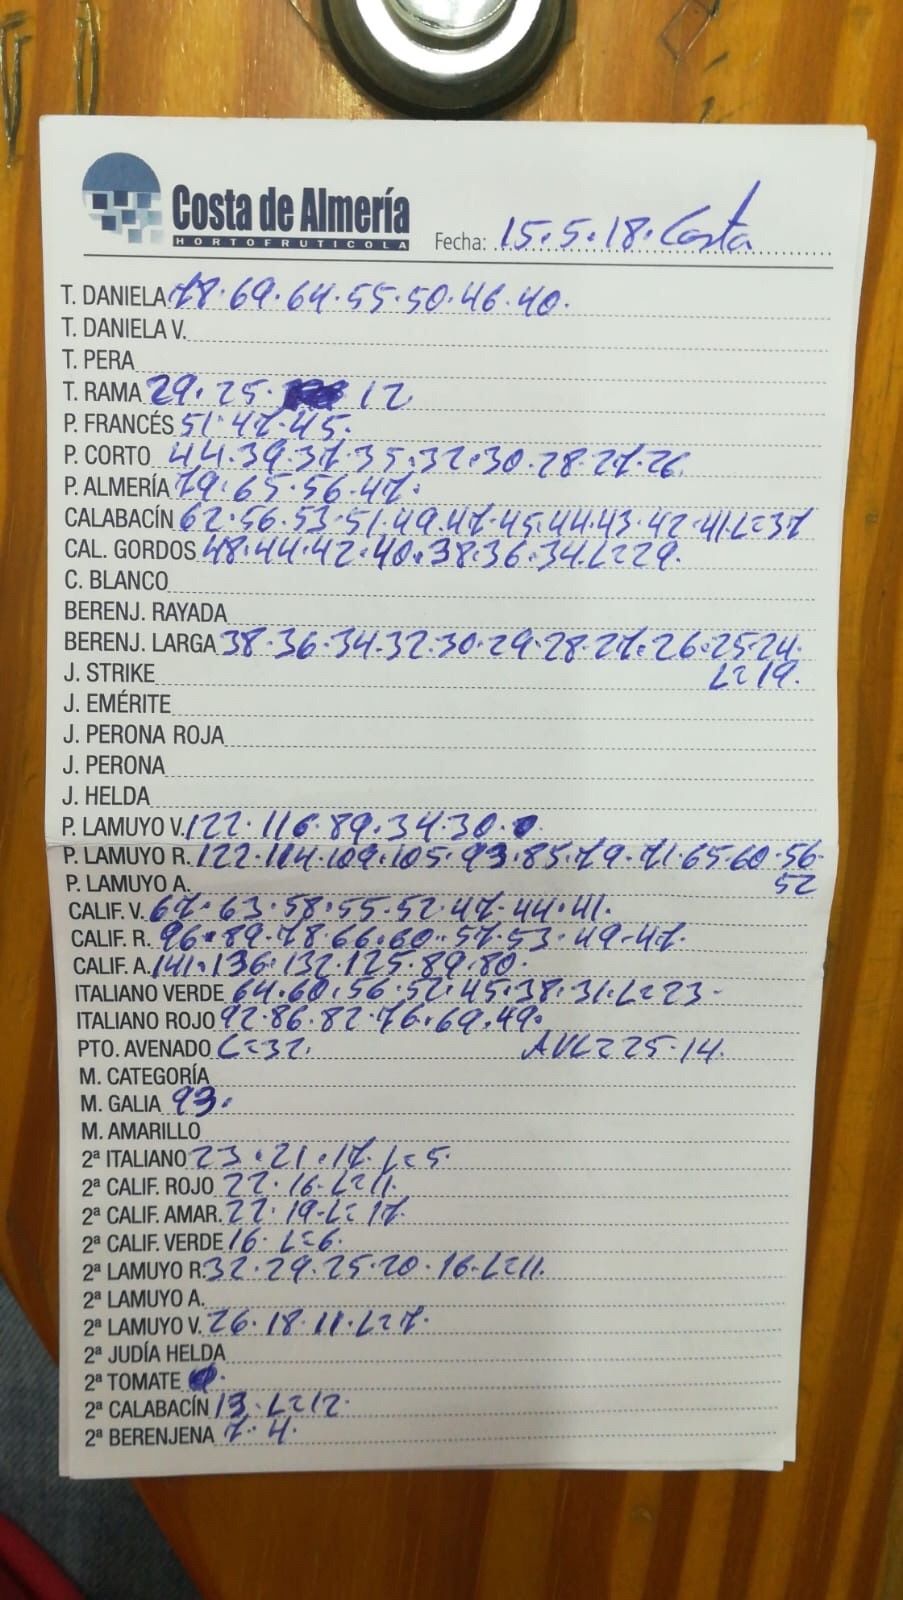 Costa de Almería
HORTOFRUTICOLA
Fecha: 15.5.18. Costa
T. DANIELA 78.69.64.55.50.46.40.
T. DANIELA V.
T. PERA
T. RAMA 29.25. 12
P. FRANCÉS 51.47.45.
P. CORTO 44.39.37.35.32.30.28.27.26
P. ALMERÍA 79.65.56.47.
CALABACÍN 62.56.53.51.49.47.45.44.43.42.41.L=37
CAL. GORDOS 48.44.42.40.38.36.34.L=29.
C. BLANCO
BERENJ. RAYADA
BERENJ. LARGA 38.36.34.32.30.29.28.27.26.25.24.
J. STRIKE L=19.
J. EMÉRITE
J. PERONA ROJA
J. PERONA
J. HELDA
P. LAMUYO V. 122.116.89.34.30.
P. LAMUYO R. 122.114.109.105.93.85.79.71.65.60.56.
P. LAMUYO A. 52
CALIF. V. 67.63.58.55.52.47.44.41.
CALIF. R. 96.89.78.66.60.57.53.49.47.
CALIF. A. 141.136.132.125.89.80.
ITALIANO VERDE 64.60.56.52.45.38.31.L=23-
ITALIANO ROJO 92.86.82.76.69.49.
PTO. AVENADO L=32. AVL=25.14.
M. CATEGORÍA
M. GALIA 93.
M. AMARILLO
2ª ITALIANO 23.21.17.L=5.
2ª CALIF. ROJO 22.16.L=11.
2ª CALIF. AMAR. 22.19.L=17
2ª CALIF. VERDE 16. L=6.
2ª LAMUYO R. 32.29.25.20.16.L=11.
2ª LAMUYO A.
2ª LAMUYO V. 26.18.11.L=7.
2ª JUDÍA HELDA
2ª TOMATE
2ª CALABACÍN 13. L=12.
2ª BERENJENA 7.4.